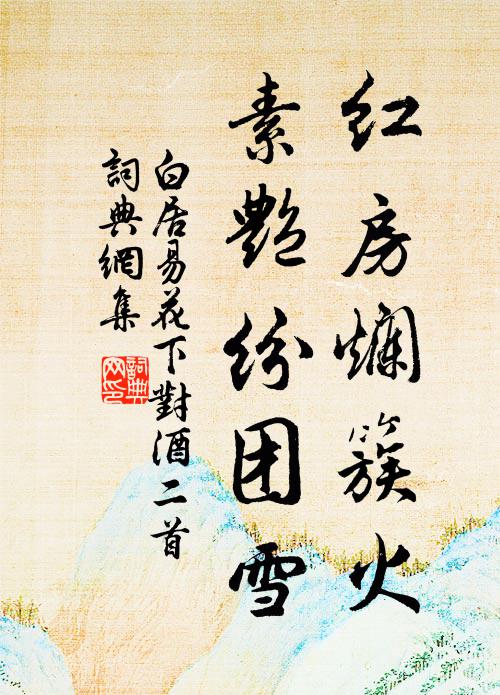 红房爛簇火
素艷纷团雪
白居易花下對酒二首
詞典網集
詞典
网印